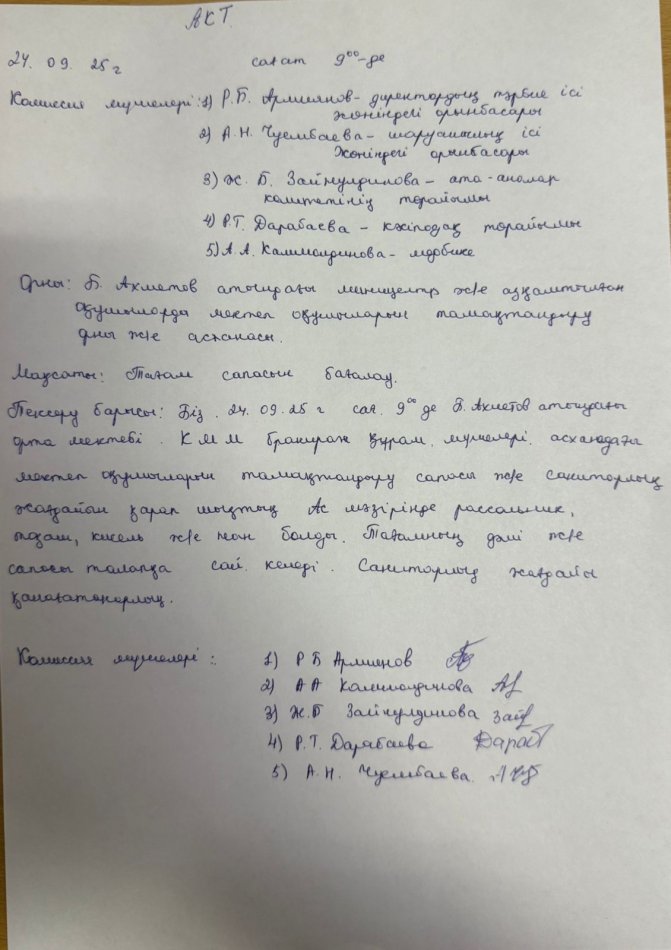 АКТ.
24. 09. 25 г сағат 9⁰⁰-де
Комиссия мүшелері: 1) Р.Б. Армиянов - директордың тәрбие ісі
жөніндегі орынбасары
2) А.Н. Чуембаева - шаруашлық ісі
жөніндегі орынбасары
3) Ж. Б. Зайнулдинова - ата-аналар
комитетінің төрайымы
4) Р.Т. Дарабаева - кәсіподақ төрайымы
5) А.А. Калимолдинова - медбике
Орны: Б. Ахметов атындағы миницентр ж/е аз қамтылған
оқушыларда мектеп оқушыларын тамақтандыру
орны ж/е асханасы.
Мақсаты: Тағам сапасын бағалау.
Тексеру барысы: Біз 24. 09. 25 г сағ. 9⁰⁰ де Б. Ахметов атындағы
орта мектебі. КММ бракираж құрам. мүшелері. асханадағы
мектеп оқушыларын тамақтандыру сапасы ж/е санитарлық
жағдайын қарап шықтық Ас мәзірінде рассольник,
кисель ж/е нан болды. Тағамның дәмі ж/е
сапасы талапқа сай келеді. Санитарлық жағдайы
қанағатанарлық.
Комиссия мүшелері:
1) Р Б Армиянов
2) А А Калимолдинова
3) Ж.Б Зайнулдинова Зайн
4) Р.Т. Дарабаева Дараб
5) А.Н. Чуембаева.